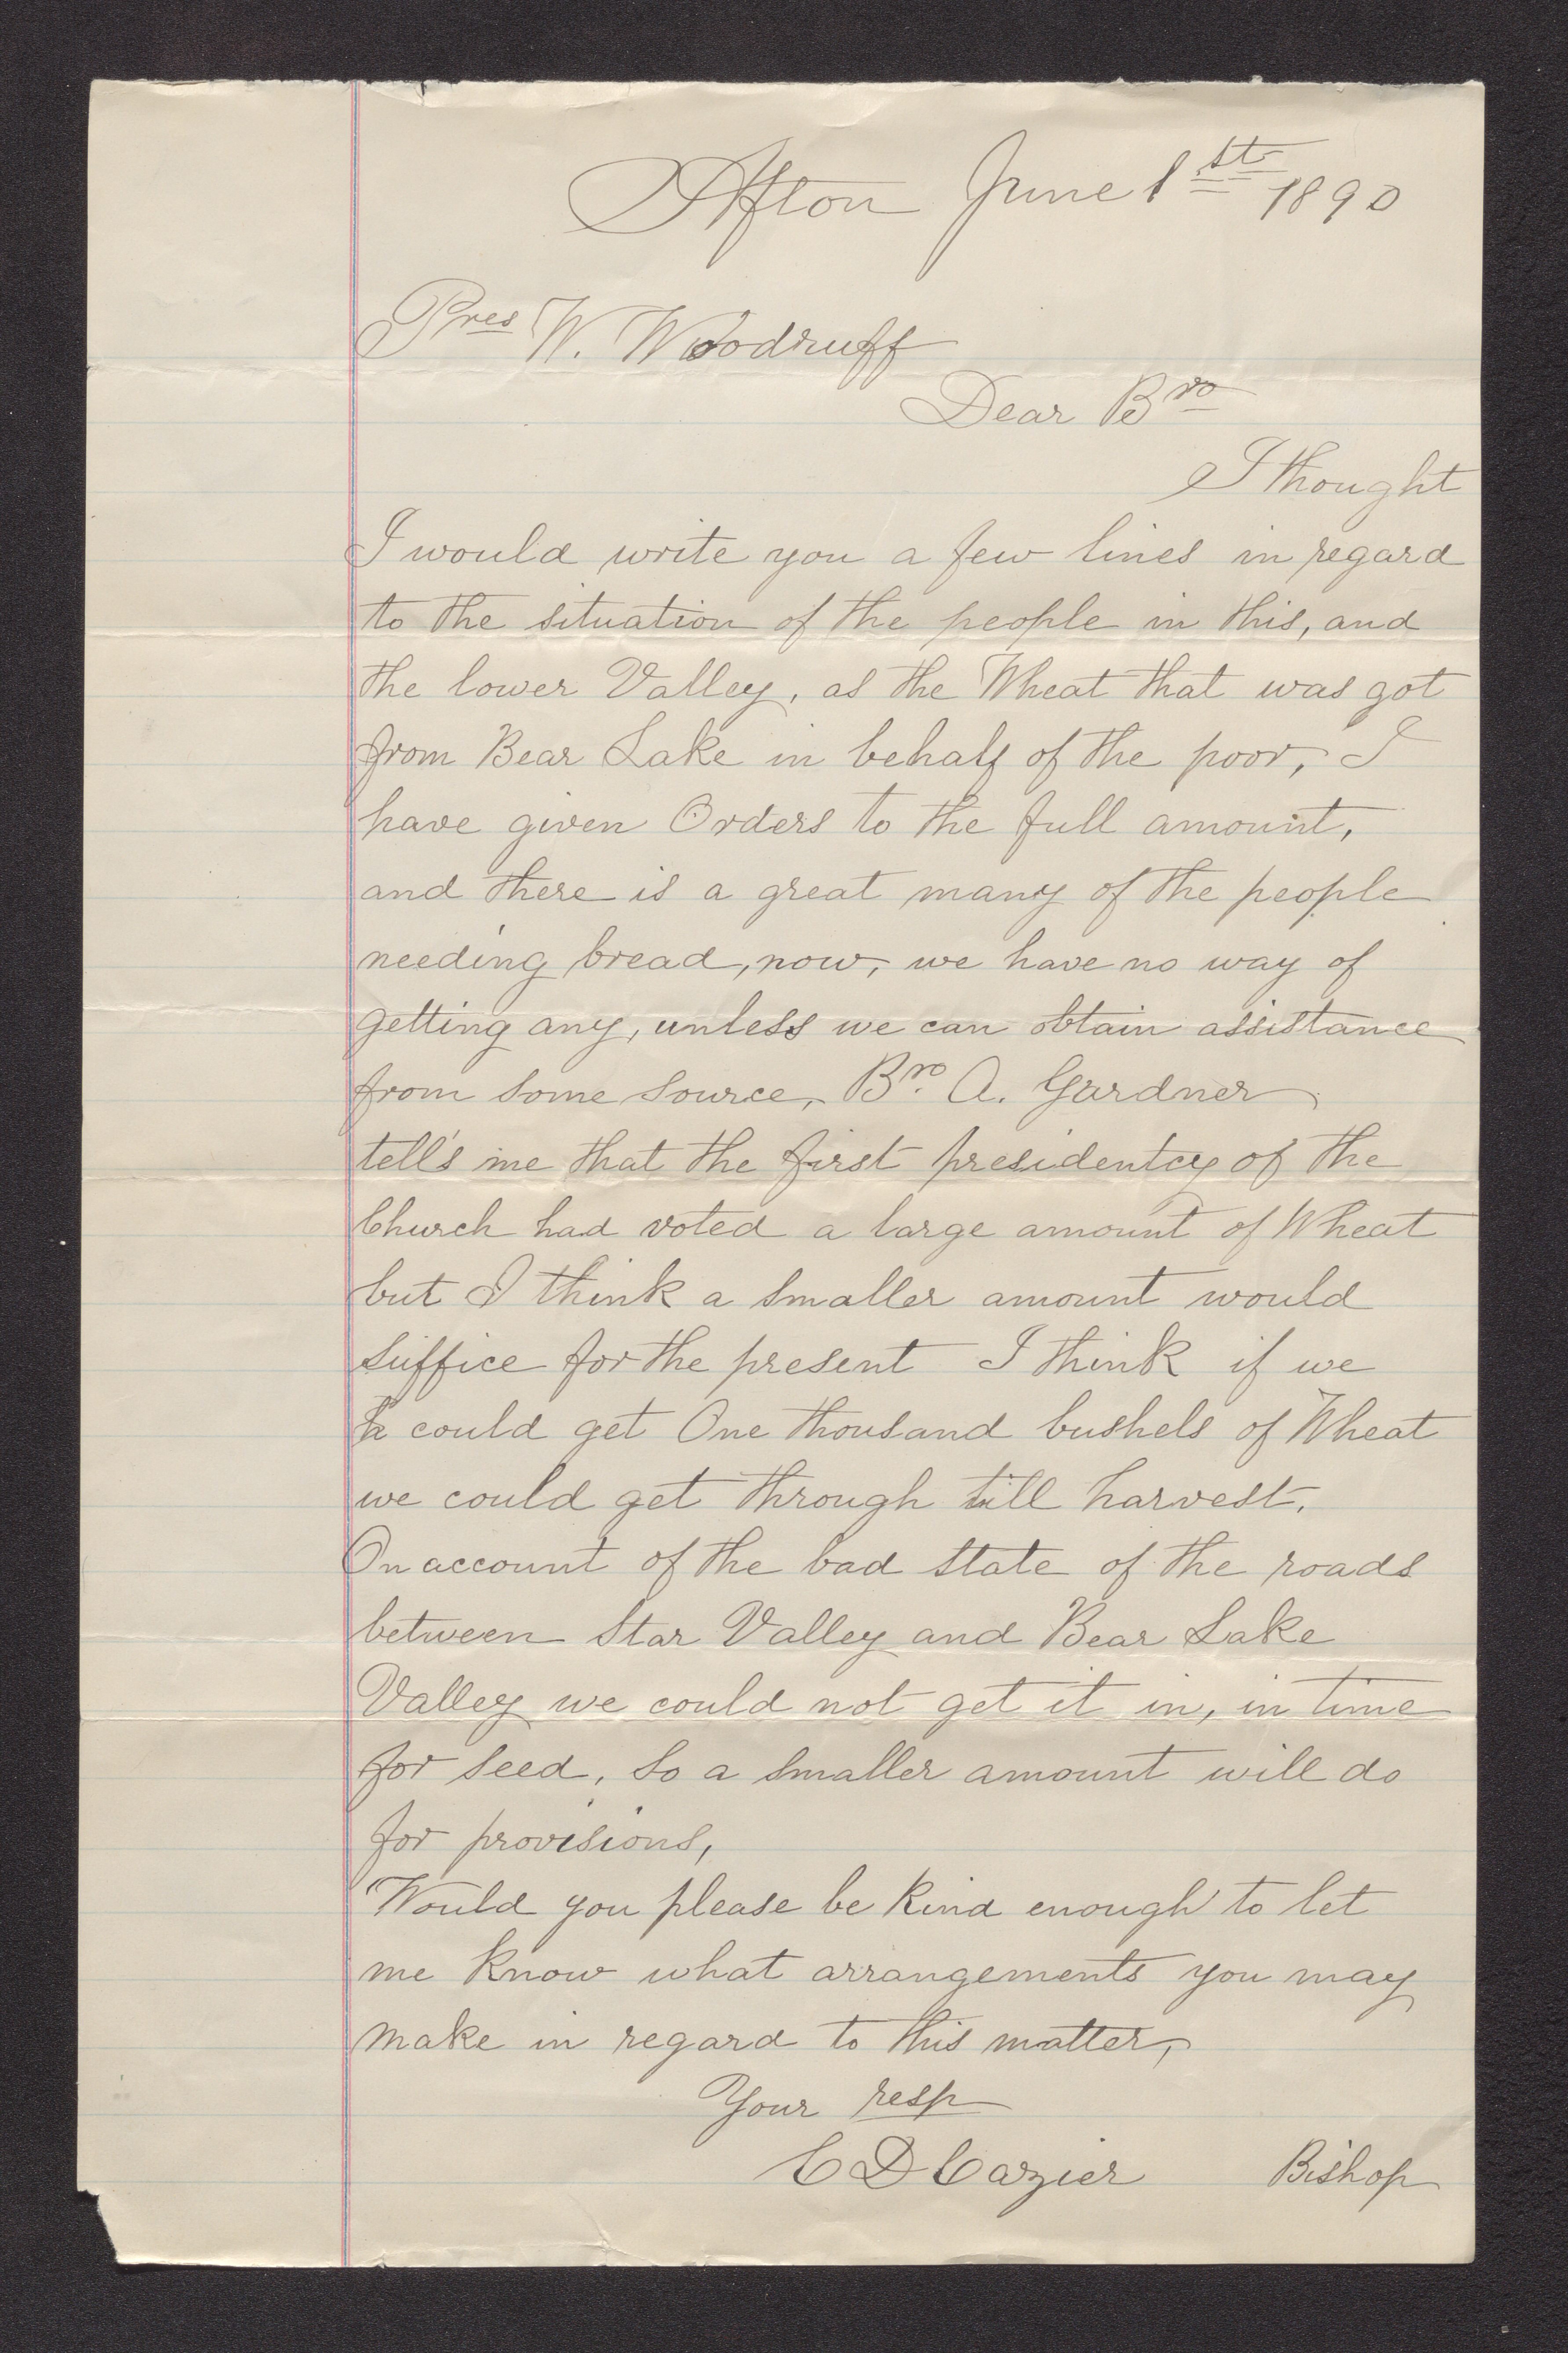 Afton June 1st 1890
Pres W. Woodruff
Dear Bro
I thought
I would write you a few lines in regard
to the situation of the people in this, and
the lower Valley, as the Wheat that was got
from Bear Lake in behalf of the poor, I
have given Orders to the full amount,
and there is a great many of the people
needing bread, now, we have no way of
getting any, unless we can obtain assistance
from some source, Bro. A. Gardner
tell's me that the first presidentcy of the
Church had voted a large amount of Wheat
but I think a smaller amount would
suffice for the present I think if we
could get One thousand bushels of Wheat
we could get through till harvest.
On account of the bad state of the roads
between Star Valley and Bear Lake
Valley we could not get it in, in time
for seed, so a smaller amount will do
for provisions,
Would you please be kind enough to let
me know what arrangements you may
make in regard to this matter,
Your resp
C D Cazier Bishop